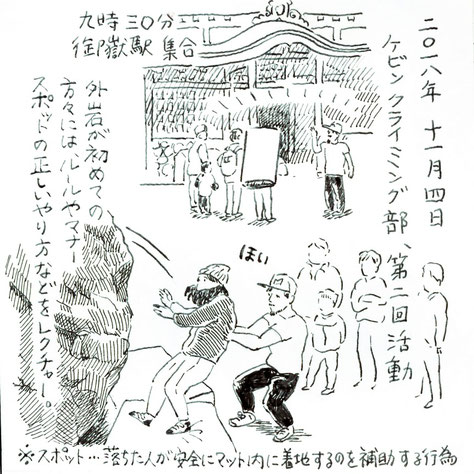 二〇一八年 十一月四日
ケビンクライミング部、第二回活動
九時三〇分
御嶽駅 集合
外岩が初めての
方々にはルールやマナー
スポットの正しいやり方などをレクチャー。
ほい
※スポット…落ちた人が安全にマット内に着地するのを補助する行為